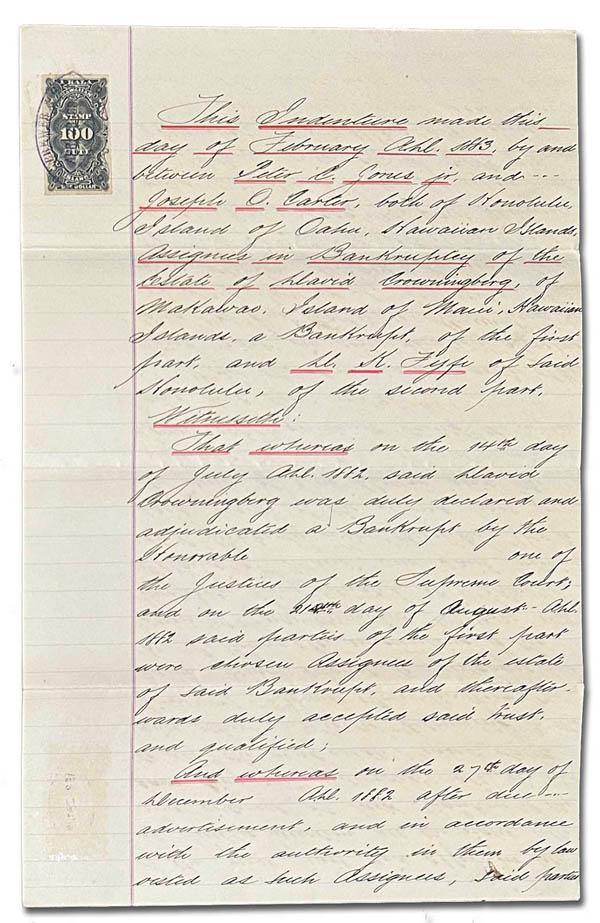 1 KALA
STAMP
100
DUTY
ONE DOLLAR
This Indenture made this
day of February A.D. 1883, by and
between Peter C. Jones jr. and
Joseph O. Carter, both of Honolulu,
Island of Oahu, Hawaiian Islands,
Assignees in Bankruptcy of the
Estate of David Crowningberg, of
Makawao, Island of Maui, Hawaiian
Islands, a Bankrupt, of the first
part, and D. K. Fyfe of said
Honolulu, of the second part.
Witnesseth:
That whereas on the 14th day
of July A.D. 1882, said David
Crowningberg was duly declared and
adjudicated a Bankrupt by the
Honorable one of
the Justices of the Supreme Court;
and on the 21st day of August A.D.
1882 said parties of the first part
were chosen Assignees of the estate
of said Bankrupt, and thereafter-
wards duly accepted said trust,
and qualified;
And whereas on the 27th day of
December A.D. 1882 after due
advertisement, and in accordance
with the authority in them by law
vested as such Assignees, said parties